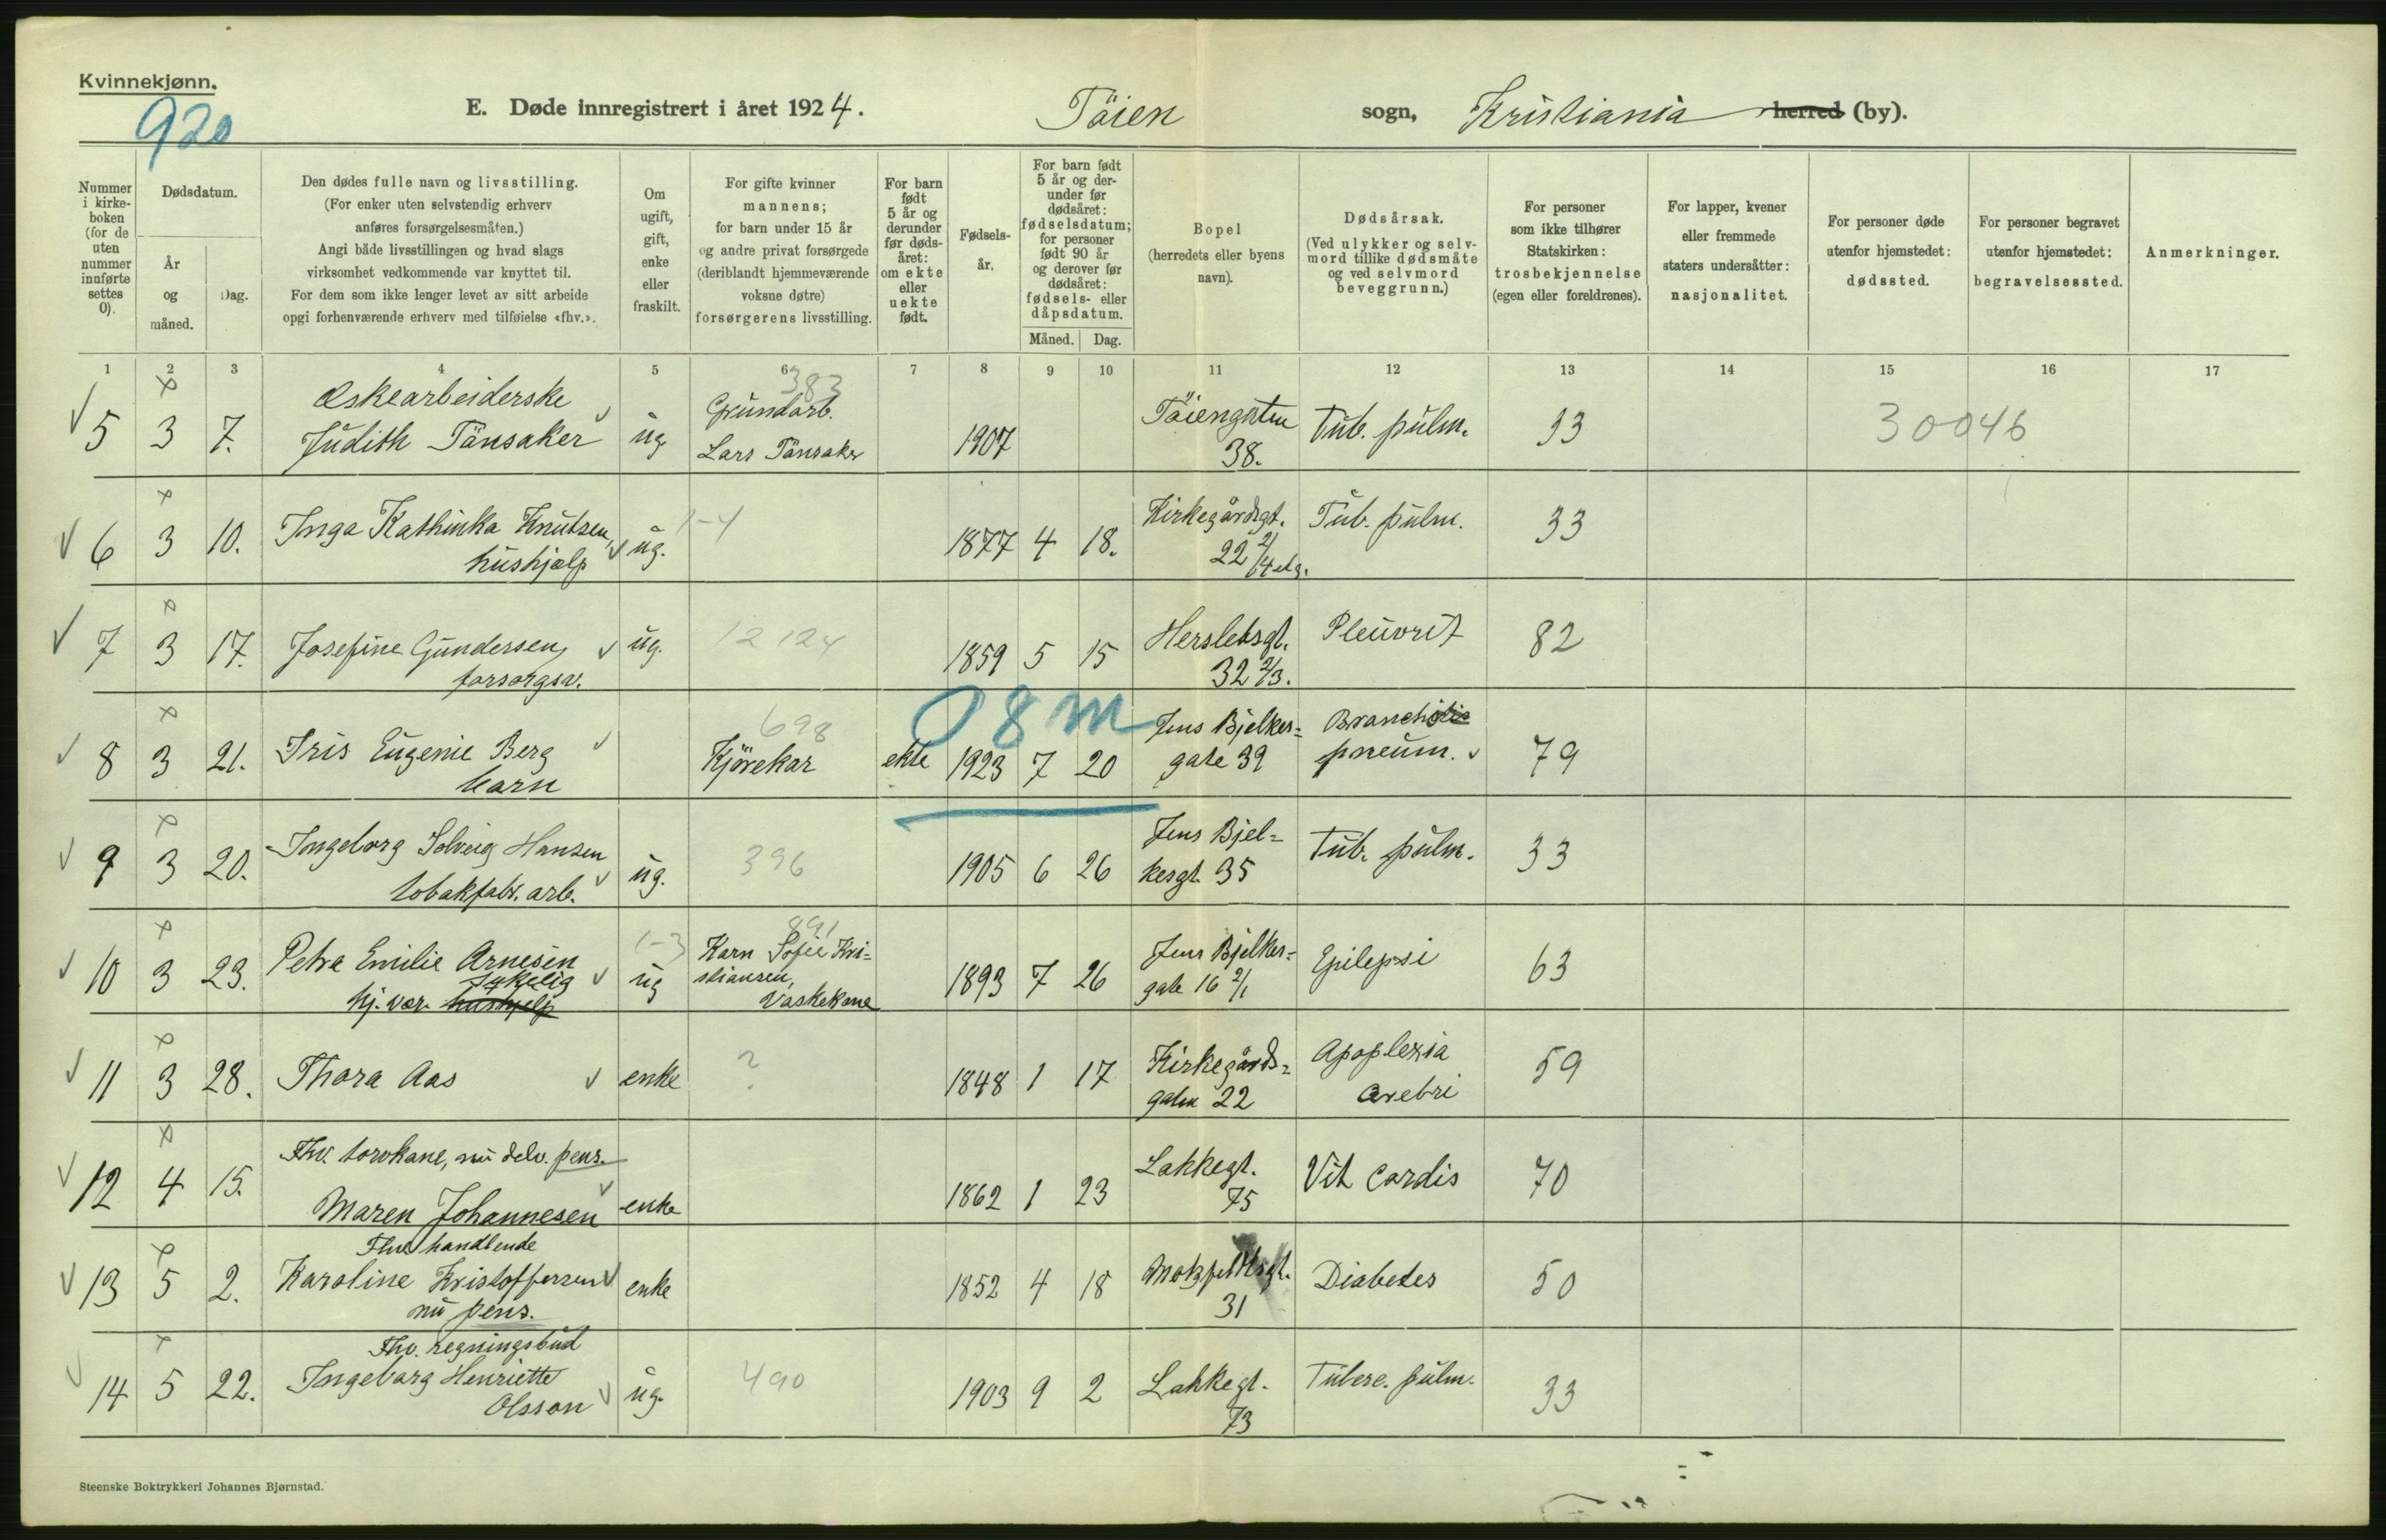 Kvinnekjønn.
920
E. Døde innregistrert i året 1924. Töien sogn, Kristiania herred (by).
Nummer i kirke-boken (for de uten nummer innførte settes 0).
Dødsdatum.
År og måned.
Dag.
Den dødes fulle navn og livsstilling.
(For enker uten selvstendig erhverv
anføres forsørgelsesmåten.)
Angi både livsstillingen og hvad slags
virksomhet vedkommende var knyttet til.
For dem som ikke lenger levet av sitt arbeide
opgi forhenværende erhverv med tilføielse «fhv.».
Om ugift, gift, enke eller fraskilt.
For gifte kvinner
mannens;
for barn under 15 år
og andre privat forsørgede
(deriblandt hjemmeværende
voksne døtre)
forsørgerens livsstilling.
For barn født 5 år og derunder før døds-året: om ekte eller uekte født.
Fødsels-år.
For barn født 5 år og der-under før dødsåret: fødselsdatum; for personer født 90 år og derover før dødsåret: fødsels- eller dåpsdatum.
Måned. Dag.
Bopel
(herredets eller byens
navn).
Dødsårsak.
(Ved ulykker og selv-
mord tillike dødsmåte
og ved selvmord
beveggrunn.)
For personer
som ikke tilhører
Statskirken:
trosbekjennelse
(egen eller foreldrenes).
For lapper, kvener
eller fremmede
staters undersåtter:
nasjonalitet.
For personer døde
utenfor hjemstedet:
dødssted.
For personer begravet
utenfor hjemstedet:
begravelsessted.
Anmerkninger.
1 2 3 4 5 6 7 8 9 10 11 12 13 14 15 16 17
Æskearbeiderske 383
Grundarb. Töiengaten
5 3 7. Judith Tånsaker ug Lars Tånsaker 1907 38. Tub. pulm. 33 30046
6 3 10. Inga Kathinka Knutsen, ug. 1-4 1877 4 18. Kirkegårdsgt. Tub. pulm. 33
hushjelp 22 2/4 etg.
7 3 17. Josefine Gundersen, ug. 12 124 1859 5 15 Herslebsgt. Pleuorit 82
forsørgsv. 32 2/3.
698 08m
8 3 21. Iris Eugenie Berg Kjörekar ekte 1923 7 20 Jens Bjelkes= Bronchitis
barn gate 39 pneum. 79
9 3 20. Ingeborg Solveig Hansen ug. 396 1905 6 26 Jens Bjel= Tub. pulm. 33
tobakfabr. arb. kesgt. 35
10 3 23. Petra Emilie Arnesen ug 1-3 891 Karn Sofie Kri= 1893 7 26 Jens Bjelkes= Epilepsi 63
sykelig stiansen, gate 16 2/1
hj. vær. hushjelp Vaskekone
11 3 28. Thora Aas enke ? 1848 1 17 Kirkegårds= Apoplexia 59
gaten 22 cerebri
Fhv. torvkone, nu delv. pens.
12 4 15. Maren Johannesen enke 1862 1 23 Lakkegt. Vit Cordis 70
75
Fhv. handlende
13 5 2. Karoline Kristoffersen enke 1852 4 18 Motzfeldtsgt. Diabetes 50
nu pens. 31
Fhv. regningsbud
14 5 22. Ingeborg Henriette ug. 490 1903 9 2 Lakkegt. Tuberc. pulm. 33
Olsson 73
Steenske Boktrykkeri Johannes Bjørnstad.